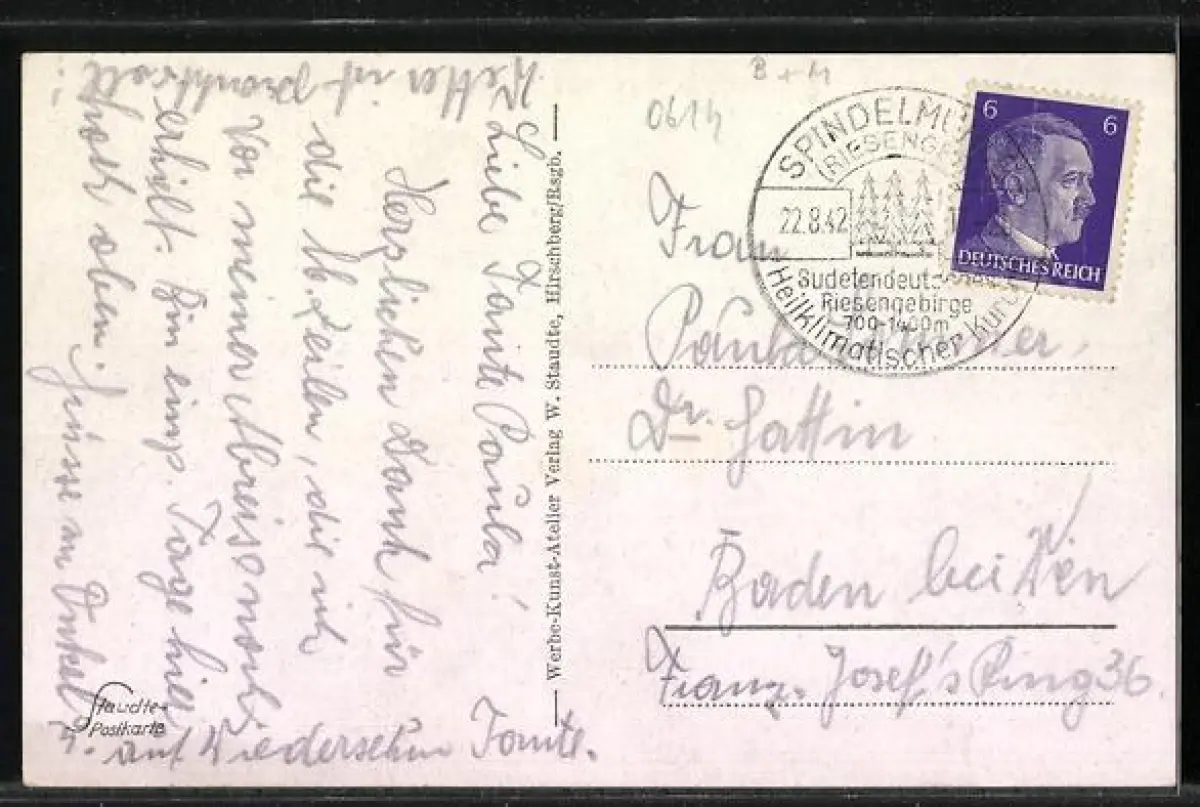 Wetter ist prachtvoll!
Liebe Tante Paula!
Herzlichen Dank für
die lb. Zeilen, die ich
vor meiner Abreise noch
erhielt. Bin einige Tage hier
hoch oben. Grüsse an Onkel
u. auf Wiedersehen Tonte.
Staudte-
Postkarte
— Werbe-Kunst-Atelier Verlag W. Staudte, Hirschberg/Rsgb. —
B + M
0614
SPINDELMÜ
(RIESENGE
22.8.42
Sudetendeuts
Riesengebirge
700-1400m
Heilklimatischer Kuro
6 6
DEUTSCHES REICH
Frau
Paula
Dr. Gattin
Baden bei Wien
Franz Josef's Ring 36.